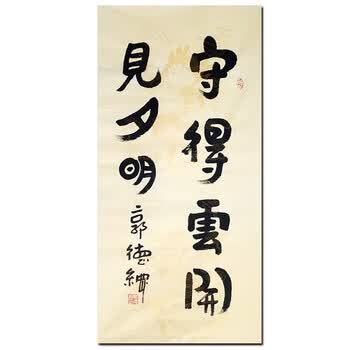 守得雲開
見月明
郭德綱